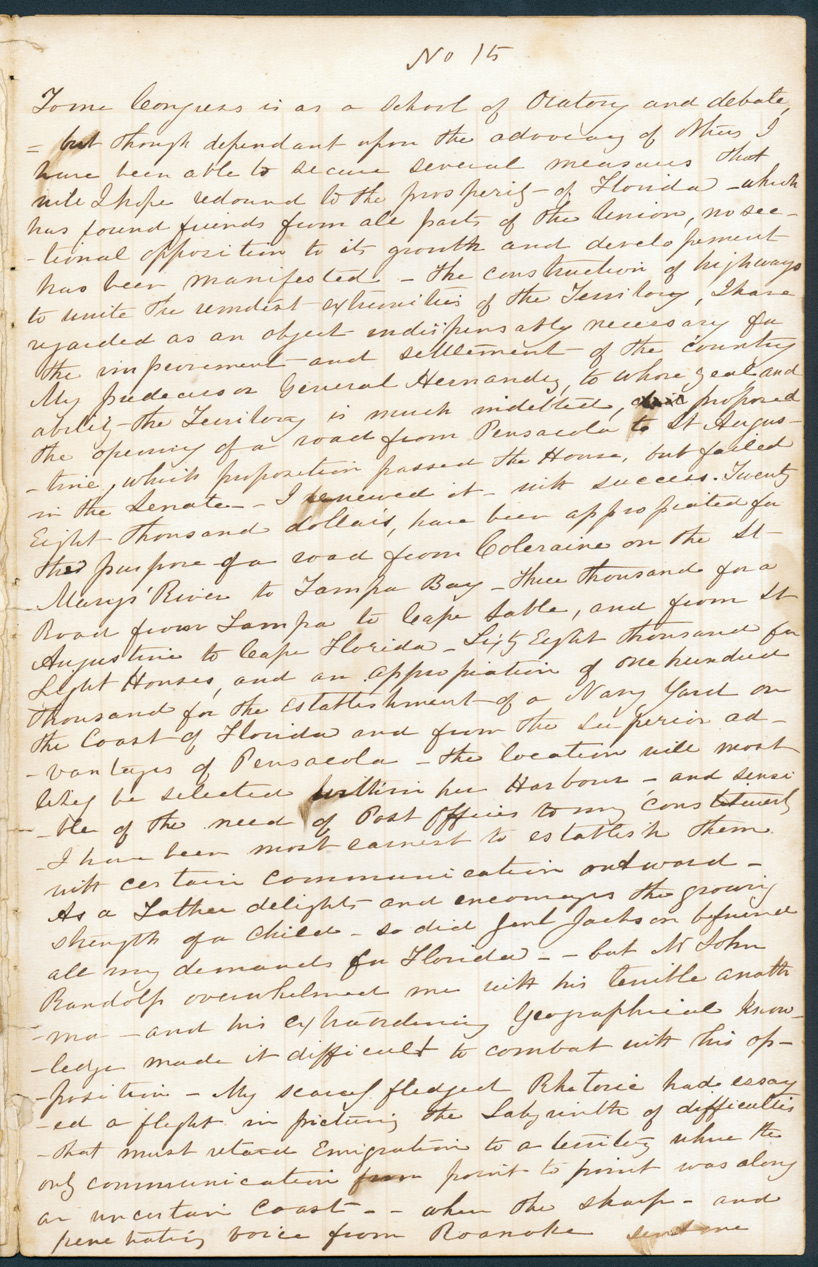 No 15
To me Congress is as a School of Oratory and debate,
= but though dependant upon the advocacy of others I
have been able to secure several measures that
will I hope redound to the prosperity of Florida - which
has found friends from all parts of the Union, no sec-
-tional opposition to its growth and developement
has been manifested - The construction of highways
to unite the remotest extremities of the Territory, I have
regarded as an object indispensably necessary for
the improvement and settlement of the country
My predecessor General Hernandez, to whose zeal and
ability the Territory is much indebted, proposed
the opening of a road from Pensacola to St Augus-
-tine, which proposition passed the House, but failed
in the Senate - I renewed it - with success. Twenty
Eight thousand dollars, have been appropriated for
the purpose of a road from Coleraine on the St
Marys' River to Tampa Bay - three thousand for a
Road from Tampa to Cape Sable, and from St
Augustine to Cape Florida - Sixty Eight thousand for
Light Houses, and an appropriation of one hundred
thousand for the establishment of a Navy Yard on
the Coast of Florida and from the superior ad-
-vantages of Pensacola - the location will most
likely be selected within her Harbour - and sensi
-ble of the need of Post Offices to my constituents
- I have been most earnest to establish them
with certain communication outward -
As a Father delights and encourages the growing
strength of a child - so did Genl Jackson befriend
all my demands for Florida - - but Mr John
Randolph overwhelmed me with his terrible anath
-ma - and his extraordinary Geographical know-
-ledge made it difficult to combat with his op-
-position - My scarce fledged Rhetoric had essay
-ed a flight in picturing the Labyrinth of difficulties
- that must retard Emigration to a territory where the
only communication from point to point was along
an uncertain coast - - when the sharp - and
penetrating voice from Roanoke send me